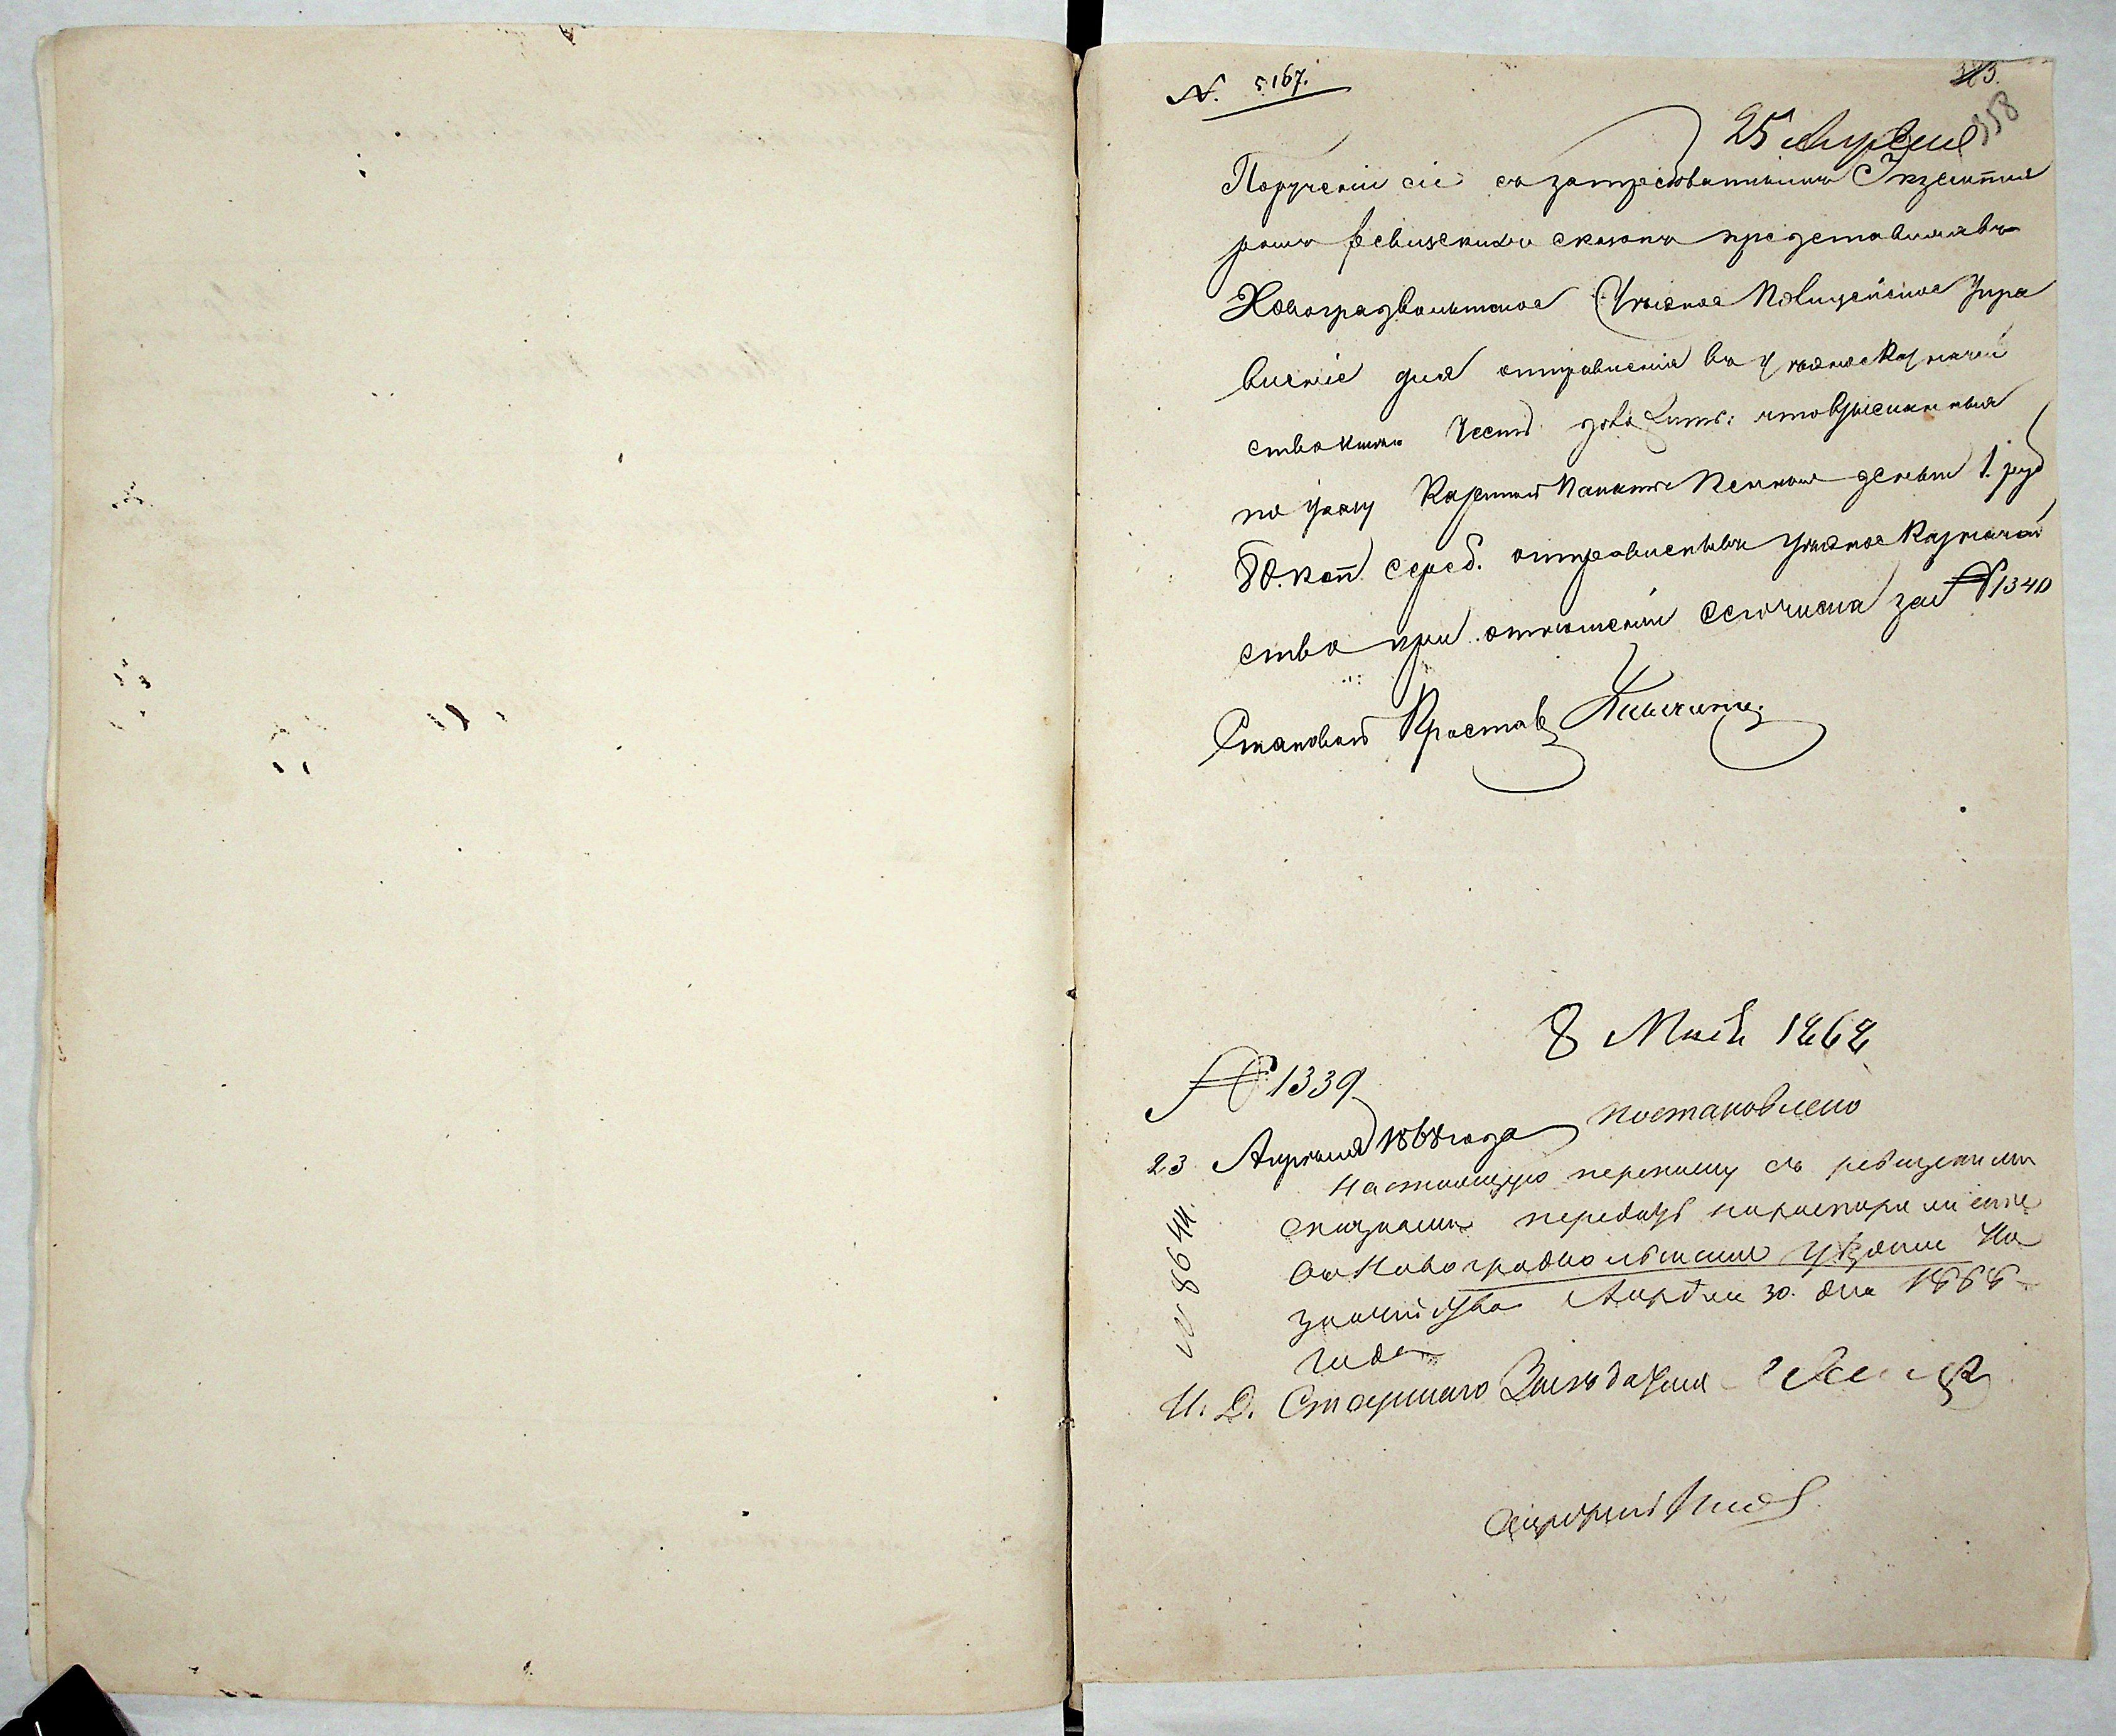 N. 5167.
313.
358
25 Апреля
Порученіе сіе съ затребованнымъ Экземпля
ромъ ревизскихъ сказокъ представляя въ
Новоградволынское Уѣздное Полицейское Упра
вленіе для отправленія въ Уѣздное Казначей
ство имѣю честь доложить: что взысканныя
по указу Казенной Палаты деньги 1. руб
80. коп. сереб. отправлены въ Уѣздное Казначей
ство при отношеніи сего числа за № 1340
Становой Приставъ
8 Мая 1868
№ 1339
23 Апрѣля 1868 года
постановлено
Настоящую переписку съ ревизскими
сказками передать на распоряженіе
въ Новоградволынское Уѣздное Ка
значейство Апрѣля 30. дня 1868
года
№ 8644.
И. Д. Старшаго Засѣдателя